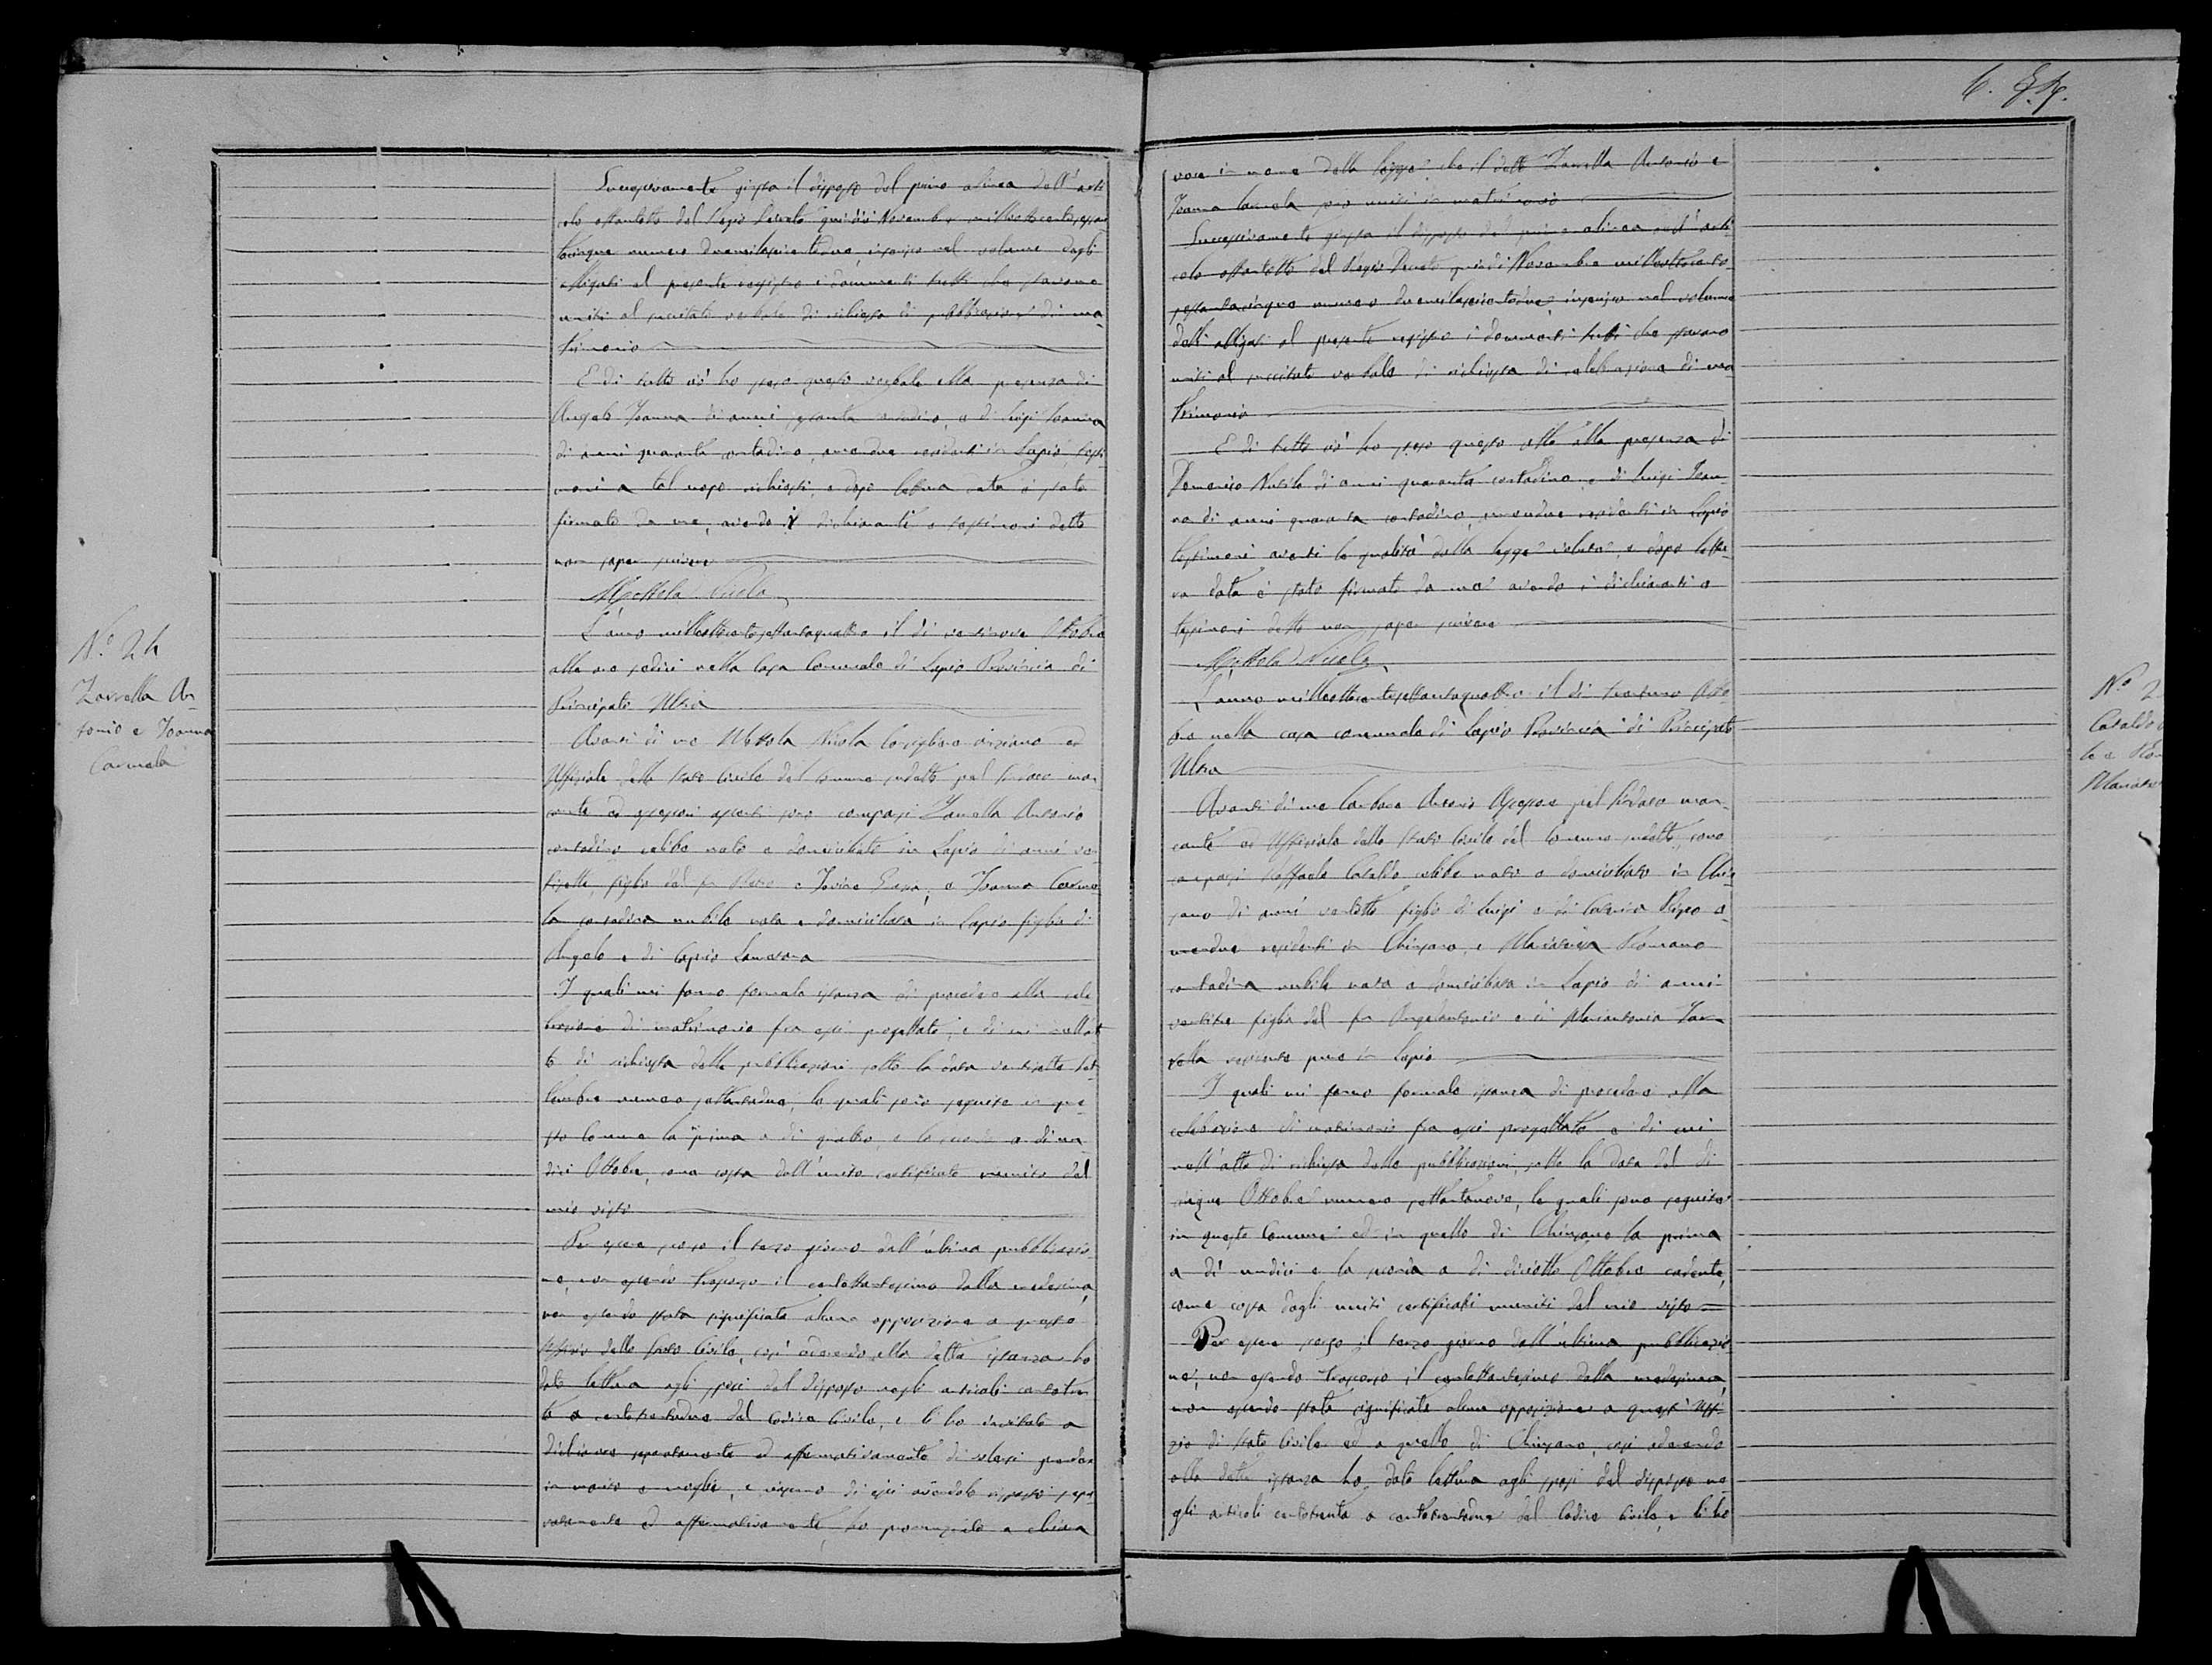 Successivamente giusta il disposto del primo alinea dell'arti
colo ottantotto del Regio Decreto quindici Novembre milleottocentosessan
tacinque numero duemilaseicentodue, inserisco nel volume degli
alligati al presente registro i documenti tutti che stavano
uniti al succitato verbale di richiesta di pubblicazioni di ma
trimonio
E di tutto ciò ho steso questo verbale alla presenza di
Angelo Joanna di anni sessanta contadino, e di Luigi Joanna
di anni quaranta contadino, amendue residenti in Lapio, testi
moni a tal uopo richiesti, e dopo lettura data è stato
firmato da me, avendo i dichiaranti e testimoni detto
non saper scrivere
Mottola Nicola
N.o 24
Zarrella An
tonio e Joanna
Carmela
L'anno milleottocentosettantaquattro il dì ventinove Ottobre
alle ore sedici nella Casa Comunale di Lapio Provincia di
Principato Ultra
Avanti di me Mottola Nicola Consigliere anziano ed
Uffiziale dello Stato Civile del comune sudetto pel Sindaco man
cante ed assessori assenti sono comparsi Zarrella Antonio
contadino celibe nato e domiciliato in Lapio di anni ven
tisette figlio del fu Pietro e Iovine, e Joanna Carme
la contadina nubile nata e domiciliata in Lapio figlia di
Angelo e di
I quali mi fanno formale istanza di procedere alla cele
brazione di matrimonio fra essi progettato, e di cui nell'at
to di richiesta delle pubblicazioni sotto la data ventisette Set
tembre numero settantadue, le quali sono seguite in que
sto Comune la prima a dì quattro, e la seconda a dì un
dici Ottobre, come costa dall'unito certificato munito del
mio visto
Per essere scorso il terzo giorno dell'ultima pubblicazio
ne, non essendo trascorso il centottantesimo dalla medesima,
non essendo stata significata alcuna opposizione a questo
Uffizio dello Stato Civile, così aderendo alla detta istanza ho
dato lettura agli sposi del disposto negli articoli centotren
ta a centotrentadue del Codice Civile, e li ho invitato a
dichiarare separatamente ed affermativamente di volersi prendere
in marito e moglie, e ciascuno di essi avendolo risposto sepa
ratamente ed affermativamente, ho pronunziato a chiara
voce in nome della legge che il detto Zarrella Antonio e
Joanna Carmela sono uniti in matrimonio
Successivamente giusta il disposto del primo alinea dell'arti
colo ottantotto del Regio Decreto quindici Novembre milleottocento
sessantacinque numero duemilaseicentodue, inserisco nel volume
delli alligati al presente registro i documenti tutti che stavano
uniti al succitato verbale di richiesta di celebrazione di ma
trimonio
E di tutto ciò ho steso questo atto alla presenza di
Domenico di anni quaranta contadino, e di Luigi Joan
na di anni quaranta contadino, amendue residenti in Lapio
testimoni aventi le qualità dalla legge volute, e dopo lettu
ra data è stato firmato da me avendo i dichiaranti e
testimoni detto non saper scrivere
Mottola Nicola
N.o 2
Cataldo
le e Ro
Maria
L'anno milleottocentosettantaquattro il dì trentuno Otto
bre nella casa comunale di Lapio Provincia di Principato
Ultra
Avanti di me Antonio Assessore pel Sindaco man
cante ed Uffiziale dello Stato Civile del Comune sudetto, sono
comparsi Raffaele Cataldo celibe nato e domiciliato in Chiu
sano di anni ventotto figlio di Luigi e di a
mendue residenti in Chiusano, e Romano
contadina nubile nata e domiciliata in Lapio di anni
ventitre figlia del fu Angelantonio e di Mariantonia Zar
rella residente pure in Lapio
I quali mi fanno formale istanza di procedere alla
celebrazione di matrimonio fra essi progettato e di cui
nell'atto di richiesta delle pubblicazioni, sotto la data del dì
cinque Ottobre numero settantanove, le quali sono seguite
in questo Comune ed in quello di Chiusano la prima
a dì undici e la seconda a dì diciotto Ottobre cadente,
come costa dagli uniti certificati muniti del mio visto
Per essere scorso il terzo giorno dell'ultima pubblicazio
ne, non essendo trascorso il centottantesimo dalla medesima,
non essendo stata significata alcuna opposizione a quest'Uffi
zio di Stato Civile ed a quello di Chiusano, così aderendo
alla detta istanza ho dato lettura agli sposi del disposto ne
gli articoli centotrenta a centotrentadue del Codice Civile, e li ho